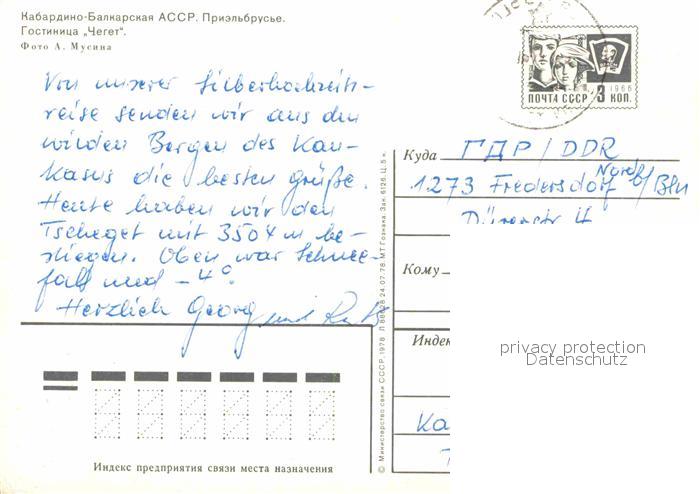 Кабардино-Балкарская АССР. Приэльбрусье.
Гостиница „Чегет".
Фото А. Мусина
Von unserer Silberhochzeits-
reise senden wir aus den
wilden Bergen des Kau-
kasus die besten Grüße.
Heute haben wir den
Tscheget mit 3504 m be-
stiegen. Oben war Schnee-
fall und -4°.
Herzlich Georg und
ПОЧТА СССР 3 КОП.
1966
Куда ГДР/DDR
1273 Fredersdorf b/Bln
Кому
Индекс
privacy protection
Datenschutz
Ка
Индекс предприятия связи места назначения
© Министерство связи СССР. 1978 24-07-78. МТ Гознака. Зак. 6126. Ц. 5 к.